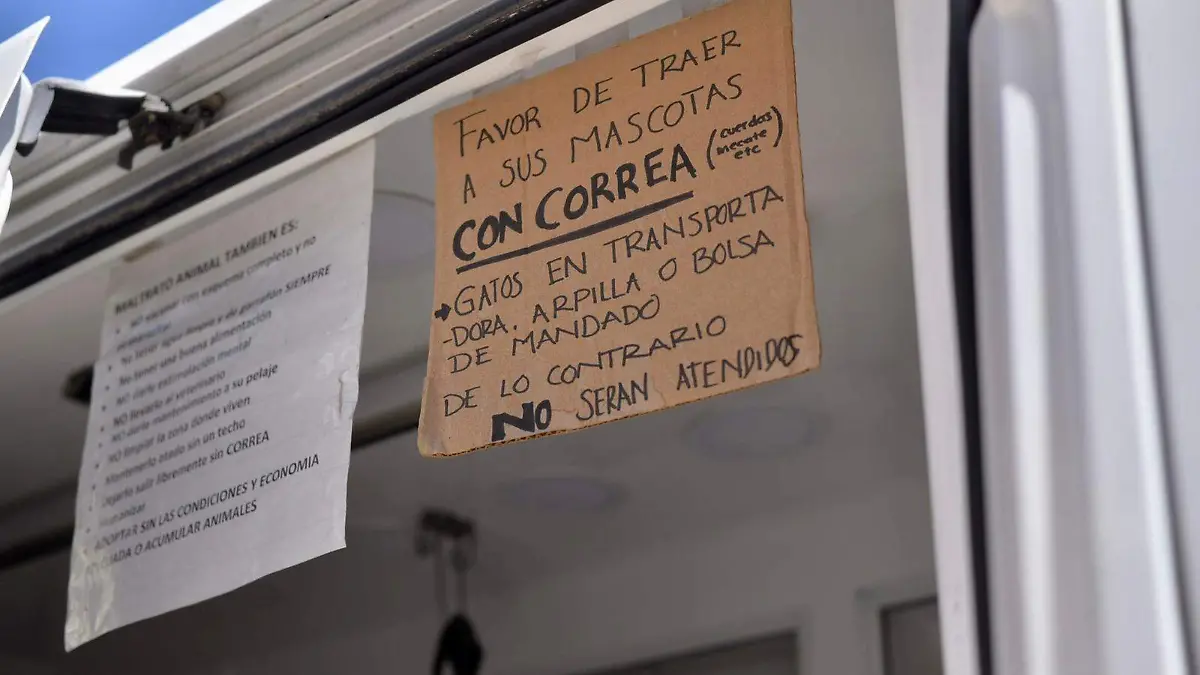 MALTRATO ANIMAL TAMBIEN ES:
NO vacunar con esquema completo y no
No tener agua limpia y de garrafón SIEMPRE
No tener una buena alimentación
No darle estimulación mental
NO llevarlo al veterinario
NO darle mantenimiento a su pelaje
NO limpiar la zona donde viven
Mantenerlo atado sin un techo
Dejarlo salir libremente sin CORREA
Humanizar
ADOPTAR SIN LAS CONDICIONES Y ECONOMIA
O ACUMULAR ANIMALES
FAVOR DE TRAER
A SUS MASCOTAS
CON CORREA (cuerdas
mecate
etc)
→GATOS EN TRANSPORTA
-DORA, ARPILLA O BOLSA
DE MANDADO
DE LO CONTRARIO
NO SERAN ATENDIDOS